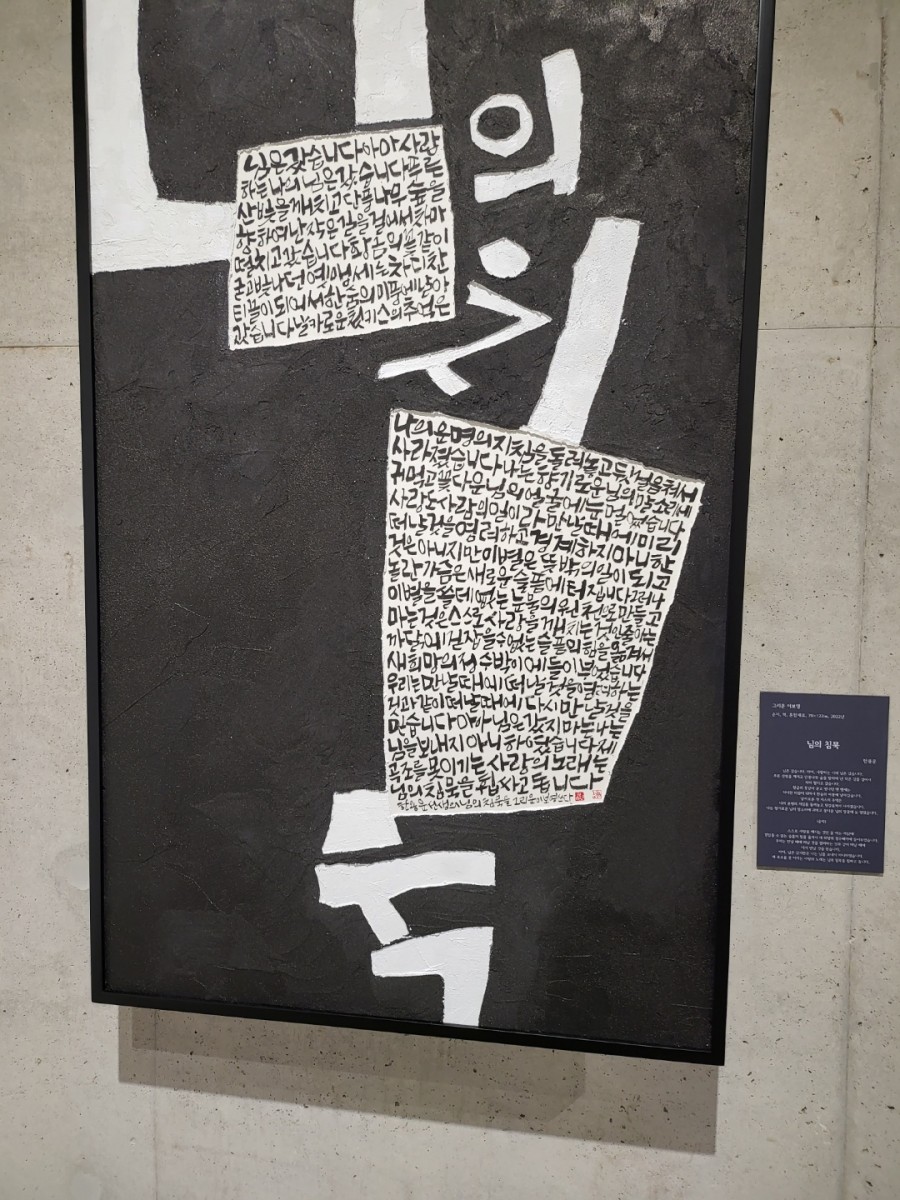 님의 침묵
님은갔습니다아아사랑
하는나의님은갔습니다푸른
산빛을깨치고단풍나무숲을
향하여난작은길을걸어서차마
떨치고갔습니다황금의꽃같이
굳고빛나던옛맹세는차디찬
티끌이되어서한숨의미풍에날아
갔습니다날카로운첫키스의추억은
나의운명의지침을돌려놓고뒷걸음쳐서
사라졌습니다나는향기로운님의말소리에
귀먹고꽃다운님의얼굴에눈멀었습니다
사랑도사람의일이라만날때에미리
떠날것을염려하고경계하지아니한
것은아니지만이별은뜻밖의일이되고
놀란가슴은새로운슬픔에터집니다그러나
이별을쓸데없는눈물의원천으로만들고
마는것은스스로사랑을깨치는것인줄아는
까닭에걷잡을수없는슬픔의힘을옮겨서
새희망의정수박이에들이부었습니다
우리는만날때에떠날것을염려하는
것과같이떠날때에다시만날것을
믿습니다아아님은갔지마는나는
님을보내지아니하였습니다제
곡조를못이기는사랑의노래는
님의침묵을휩싸고돕니다
님의침묵을
2022년
님의 침묵
한용운